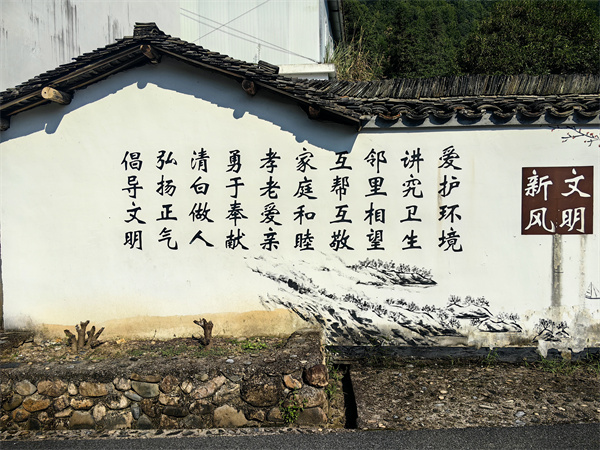 文明
新风
爱护环境
讲究卫生
邻里相望
互帮互敬
家庭和睦
孝老爱亲
勇于奉献
清白做人
弘扬正气
倡导文明